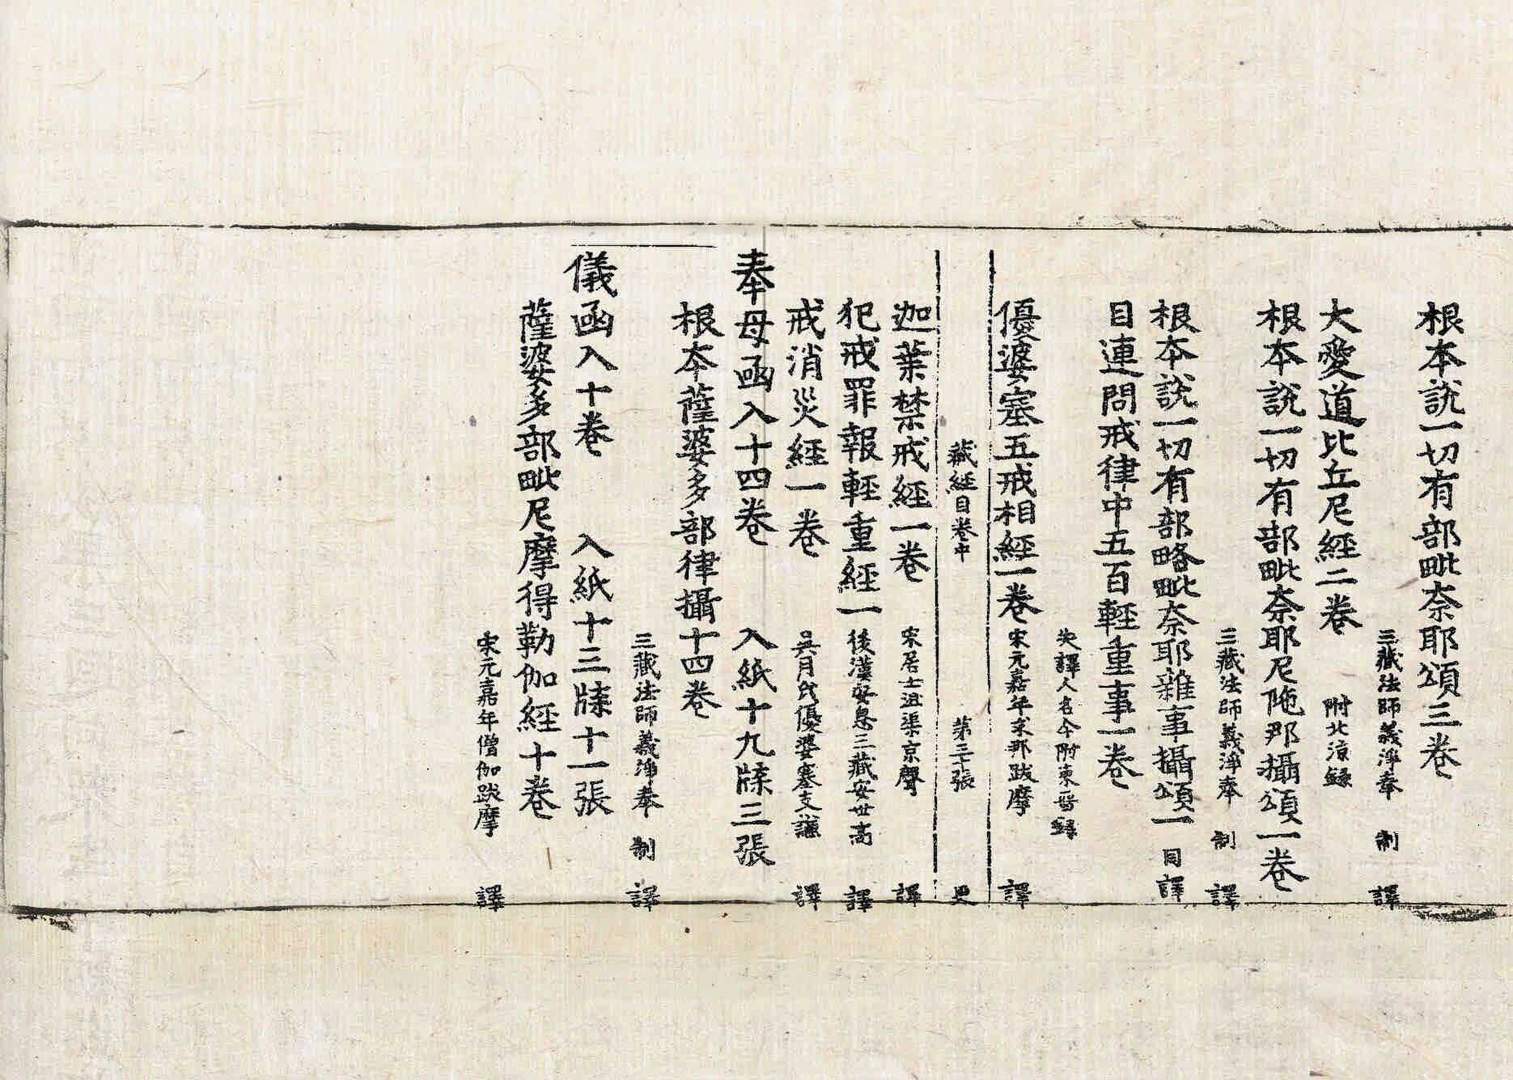 根本說一切有部毗奈耶頌三卷
三藏法師義淨奉 制 譯
大愛道比丘尼經二卷 附北涼錄
根本說一切有部毗奈耶尼陁那攝頌一卷
三藏法師義淨奉 制 譯
根本說一切有部略毗奈耶雜事攝頌一 同譯
目連問戒律中五百輕重事一卷
失譯人名今附東晉錄
優婆塞五戒相經一卷 宋元嘉年求那跋摩 譯
藏經目卷中 第三十張 更
迦葉禁戒經一卷 宋居士沮渠京聲 譯
犯戒罪報輕重經一 後漢安息三藏安世高 譯
戒消災經一卷 吳月氏優婆塞支謙 譯
奉母函入十四卷 入紙十九牒三張
根本薩婆多部律攝十四卷
三藏法師義淨奉 制 譯
儀函入十卷 入紙十三牒十一張
薩婆多部毗尼摩得勒伽經十卷
宋元嘉年僧伽跋摩 譯